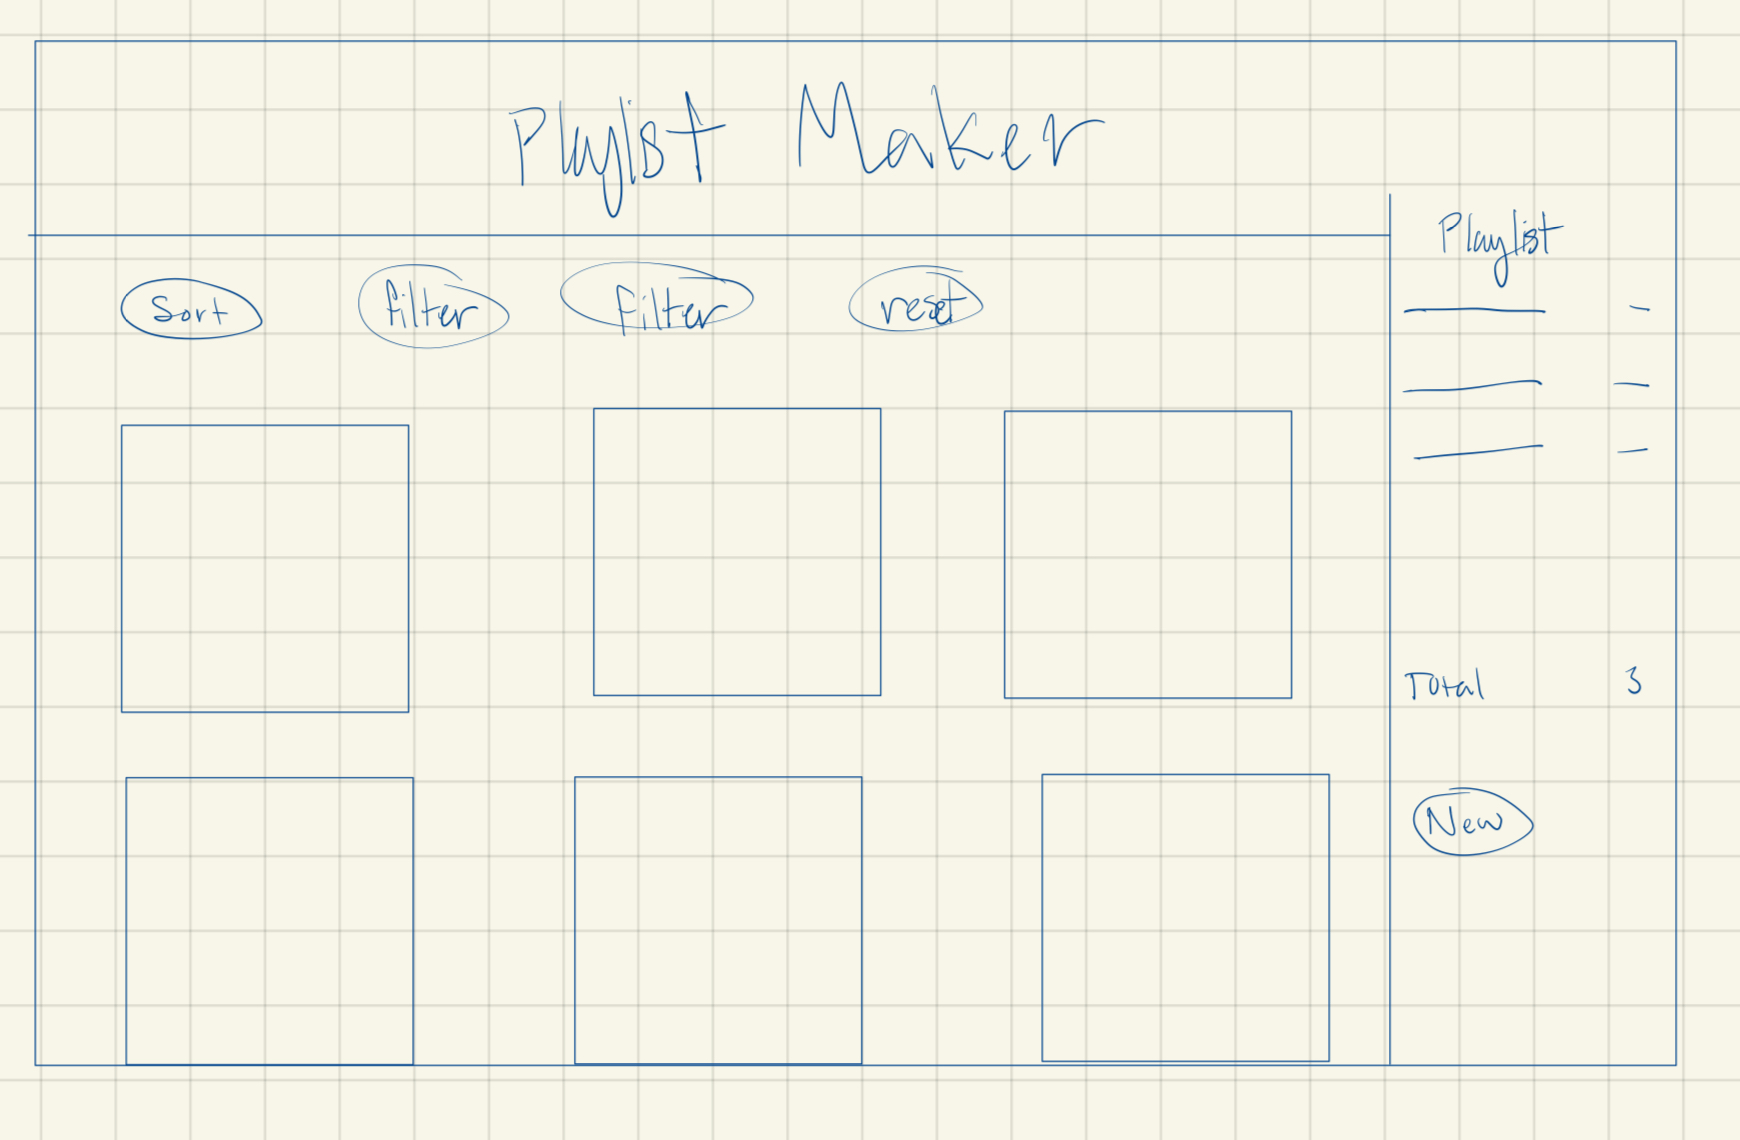 Playlist Maker
Sort filter filter reset
Playlist
Total 3
New